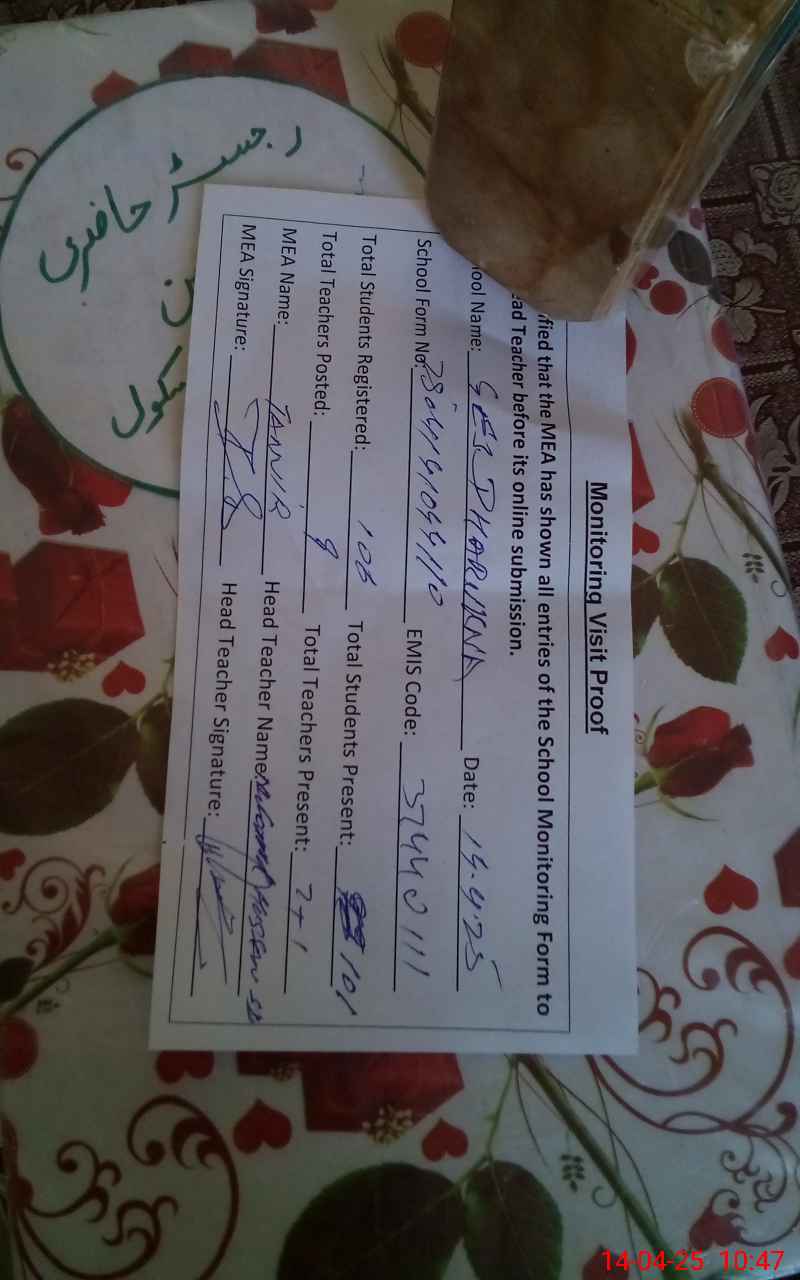 Monitoring Visit Proof
ified that the MEA has shown all entries of the School Monitoring Form to
ead Teacher before its online submission.
ool Name: GES DHARUKNA Date: 14.4.25
School Form No: EMIS Code: 37440111
Total Students Registered: 106 Total Students Present: 101
Total Teachers Posted: 8 Total Teachers Present: 7+1
MEA Name: TANVIR Head Teacher Name:
MEA Signature: Head Teacher Signature:
رجسٹر حاضری
سکول
14-04-25 10:47